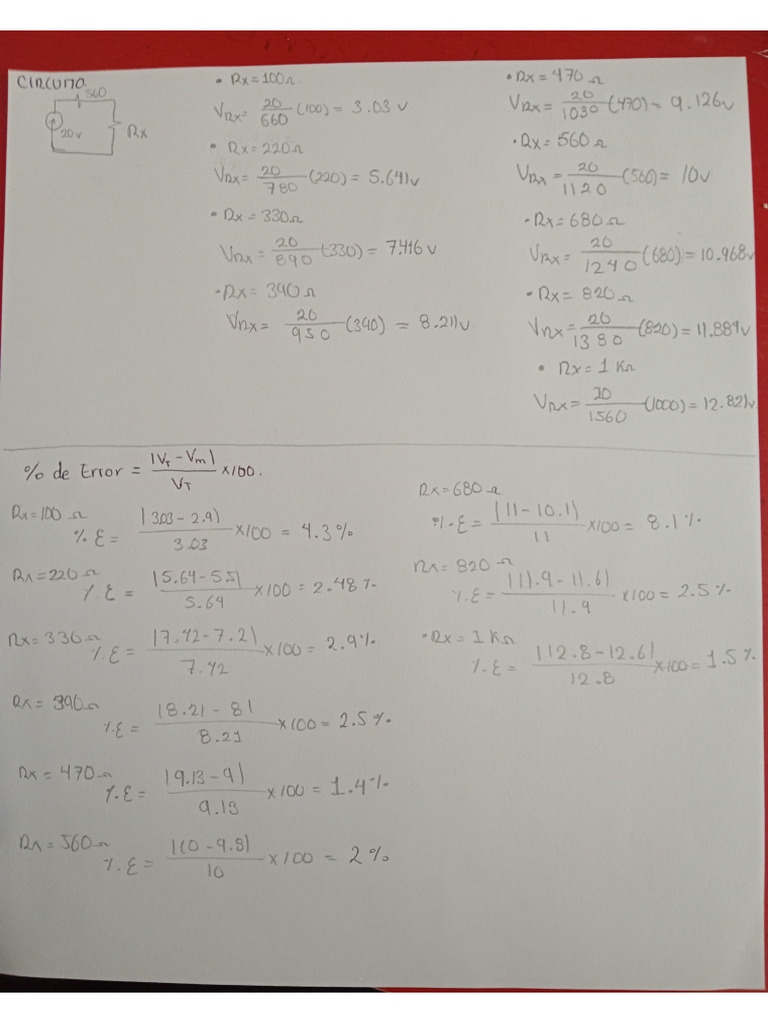 CIRCUITO
560
20v
Rx
• Rx = 100Ω
VRx = 20/660 (100) = 3.03 v
• Rx = 220Ω
VRx = 20/780 (220) = 5.641v
• Rx = 330Ω
VRx = 20/890 (330) = 7.416 v
• Rx = 390Ω
VRx = 20/950 (390) = 8.211v
• Rx = 470 Ω
VRx = 20/1030 (470) = 9.126v
• Rx = 560Ω
VRx = 20/1120 (560) = 10v
• Rx = 680Ω
VRx = 20/1240 (680) = 10.968v
• Rx = 820Ω
VRx = 20/1380 (820) = 11.884v
• Rx = 1 KΩ
VRx = 20/1560 (1000) = 12.821v
% de Error = |VT - Vm|/VT x100.
Rx = 100 Ω
% E = |3.03 - 2.9|/3.03 x100 = 4.3 %
Rx = 220Ω
% E = |5.64 - 5.5|/5.64 x100 = 2.48 %
Rx = 330Ω
% E = |7.42 - 7.2|/7.42 x100 = 2.9 %
Rx = 390Ω
% E = |8.21 - 8|/8.21 x100 = 2.5 %
Rx = 470Ω
% E = |9.13 - 9|/9.13 x100 = 1.4 %
Rx = 560Ω
% E = |10 - 9.8|/10 x100 = 2 %
Rx = 680Ω
% E = |11 - 10.1|/11 x100 = 8.1 %
Rx = 820Ω
% E = |11.9 - 11.6|/11.9 x100 = 2.5 %
• Rx = 1 KΩ
% E = |12.8 - 12.6|/12.8 x100 = 1.5 %